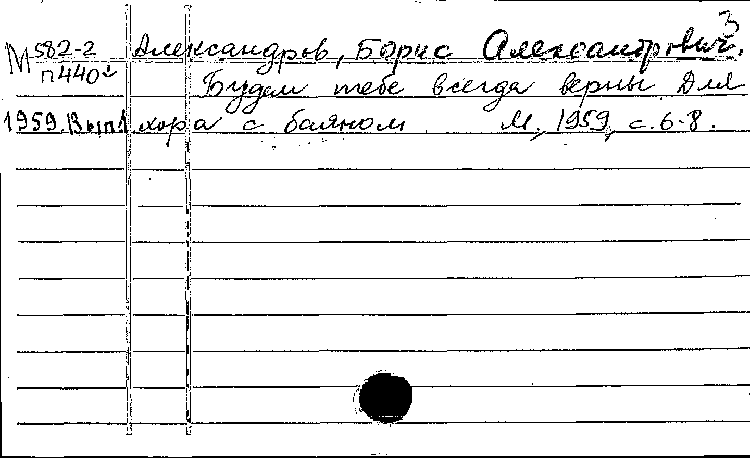 3
М 582-2 Александров, Борис Александрович.
п440
Будем тебе всегда верны. Для
1959. Вып. хора с баяном. М., 1959, с. 6-8.